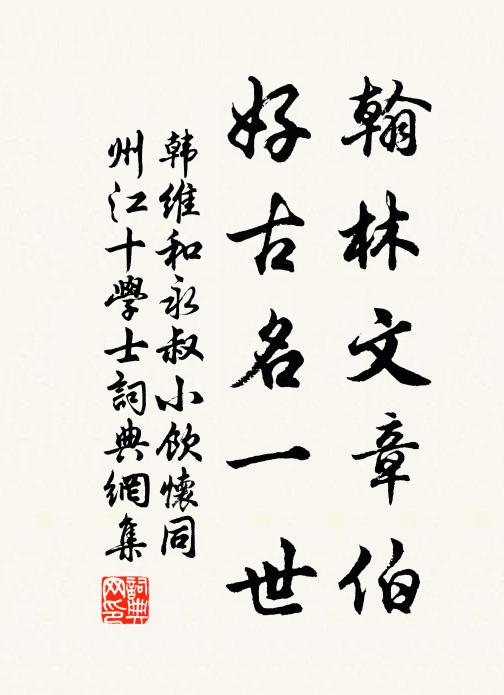 翰林文章伯
好古名一世
韩維和永叔小飲懷同
州江十學士詞典網集
詞典